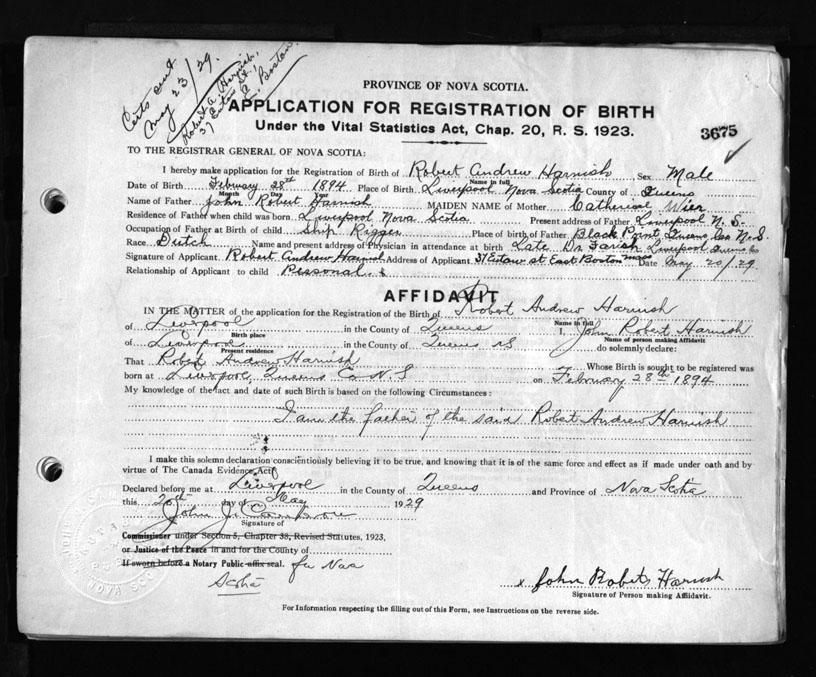 Certs sent
May 23/29.
Robert A. Harnish,
37 Eutaw St.,
E. Boston.
PROVINCE OF NOVA SCOTIA.
APPLICATION FOR REGISTRATION OF BIRTH
Under the Vital Statistics Act, Chap. 20, R. S. 1923.
3675
TO THE REGISTRAR GENERAL OF NOVA SCOTIA:
I hereby make application for the Registration of Birth of Robert Andrew Harnish Sex Male
Name in full
Date of Birth February 28th 1894 Place of Birth Liverpool Nova Scotia County of Queens
Month Day Year
Name of Father John Robert Harnish MAIDEN NAME of Mother Catherine Wier
Residence of Father when child was born Liverpool Nova Scotia Present address of Father Liverpool N. S.
Occupation of Father at Birth of child Ship Rigger Place of birth of Father Black Point Queens Co N. S.
Race Dutch Name and present address of Physician in attendance at birth Late Dr Farish Liverpool Queens Co
Signature of Applicant Robert Andrew Harnish Address of Applicant 37 Eutaw st East Boston mass Date May 20/29
Relationship of Applicant to child Personal.
AFFIDAVIT
IN THE MATTER of the application for the Registration of the Birth of Robert Andrew Harnish
Name in full
of Liverpool in the County of Queens I John Robert Harnish
Birth place Name of person making Affidavit
of Liverpool in the County of Queens NS do solemnly declare:
Present residence
That Robert Andrew Harnish Whose Birth is sought to be registered was
born at Liverpool Queens Co N. S on February 28th 1894
My knowledge of the fact and date of such Birth is based on the following Circumstances:
I am the father of the said Robert Andrew Harnish
I make this solemn declaration conscientiously believing it to be true, and knowing that it is of the same force and effect as if made under oath and by
virtue of The Canada Evidence Act.
Declared before me at Liverpool in the County of Queens and Province of Nova Scotia
this 20th day of May 1929
John J.
Signature of
Commissioner under Section 5, Chapter 38, Revised Statutes, 1923,
or Justice of the Peace in and for the County of
If sworn before a Notary Public affix seal. for Nova
Scotia
x John Robert Harnish
Signature of Person making Affidavit.
For Information respecting the filling out of this Form, see Instructions on the reverse side.